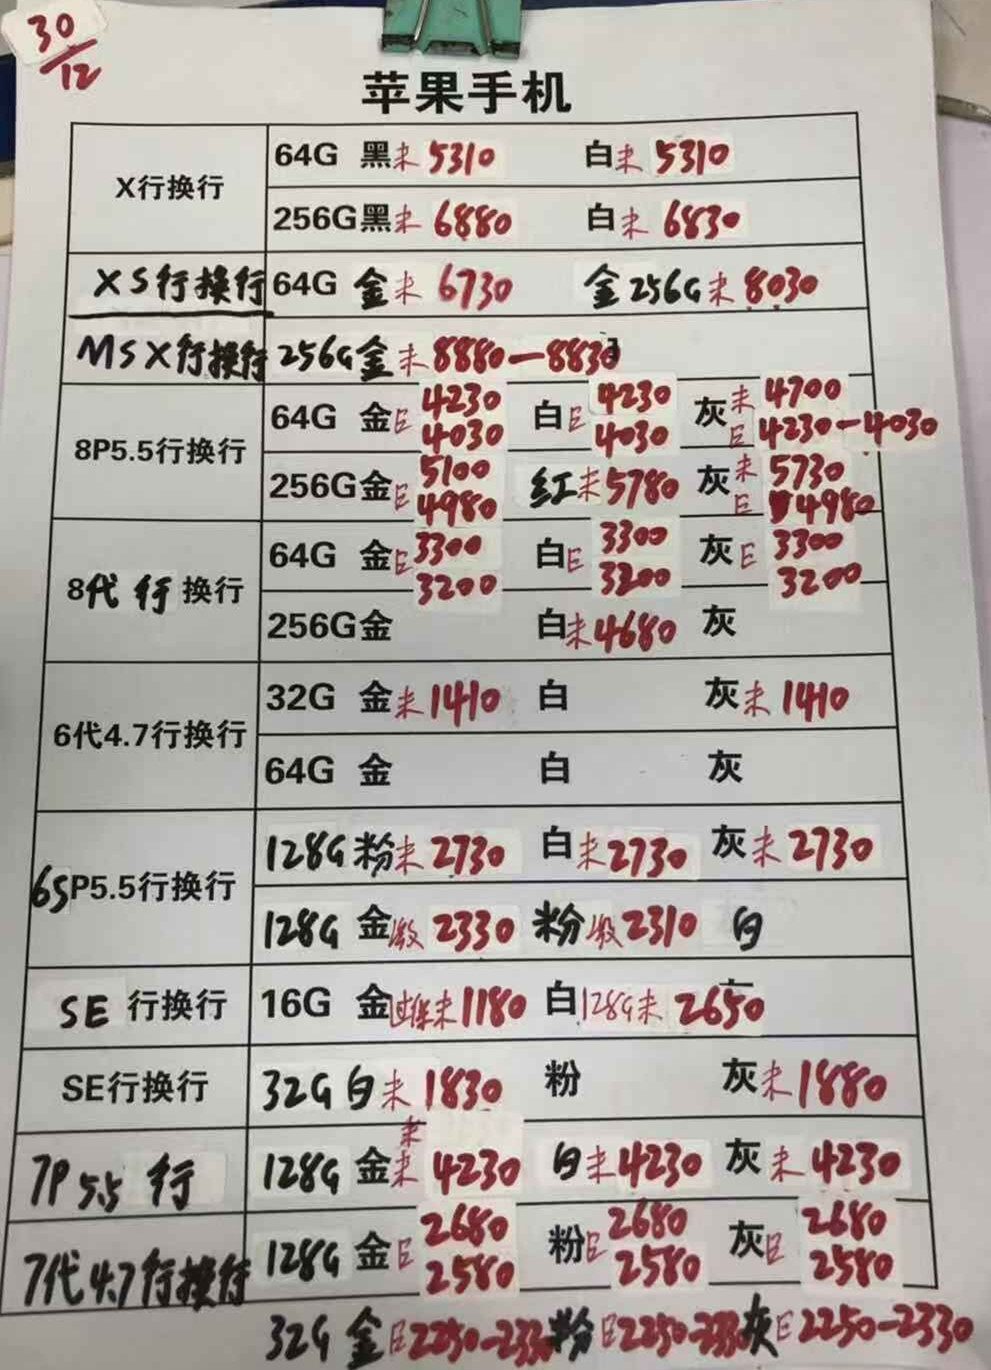 30
12
苹果手机
X行换行
64G 黑未 5310 白未 5310
256G黑未 6880 白未 6830
XS行换行 64G 金未 6730 金256G未 8030
MSX行换行 256G金未8880-8830
8P5.5行换行
64G 金E 4230 4030 白E 4230 4030 灰 未 4700 E 4230-4030
256G金E 5100 4980 红未5780 灰 未 5730 E 4980
8代行换行
64G 金E 3300 3200 白E 3300 3200 灰E 3300 3200
256G金 白未4680 灰
6代4.7行换行
32G 金未1410 白 灰未1410
64G 金 白 灰
6SP5.5行换行
128G粉未2730 白未2730 灰未2730
128G 金激2330 粉激2310 白
SE 行换行 16G 金过保未1180 白128G未 2650
SE行换行 32G白未 1830 粉 灰未1880
7P5.5 行 128G 金未 未 4230 白未4230 灰未 4230
7代4.7行换行 128G 金E 2680 2580 粉E 2680 2580 灰E 2680 2580
32G 金E2250-233 粉E2250-233 灰E2250-2330